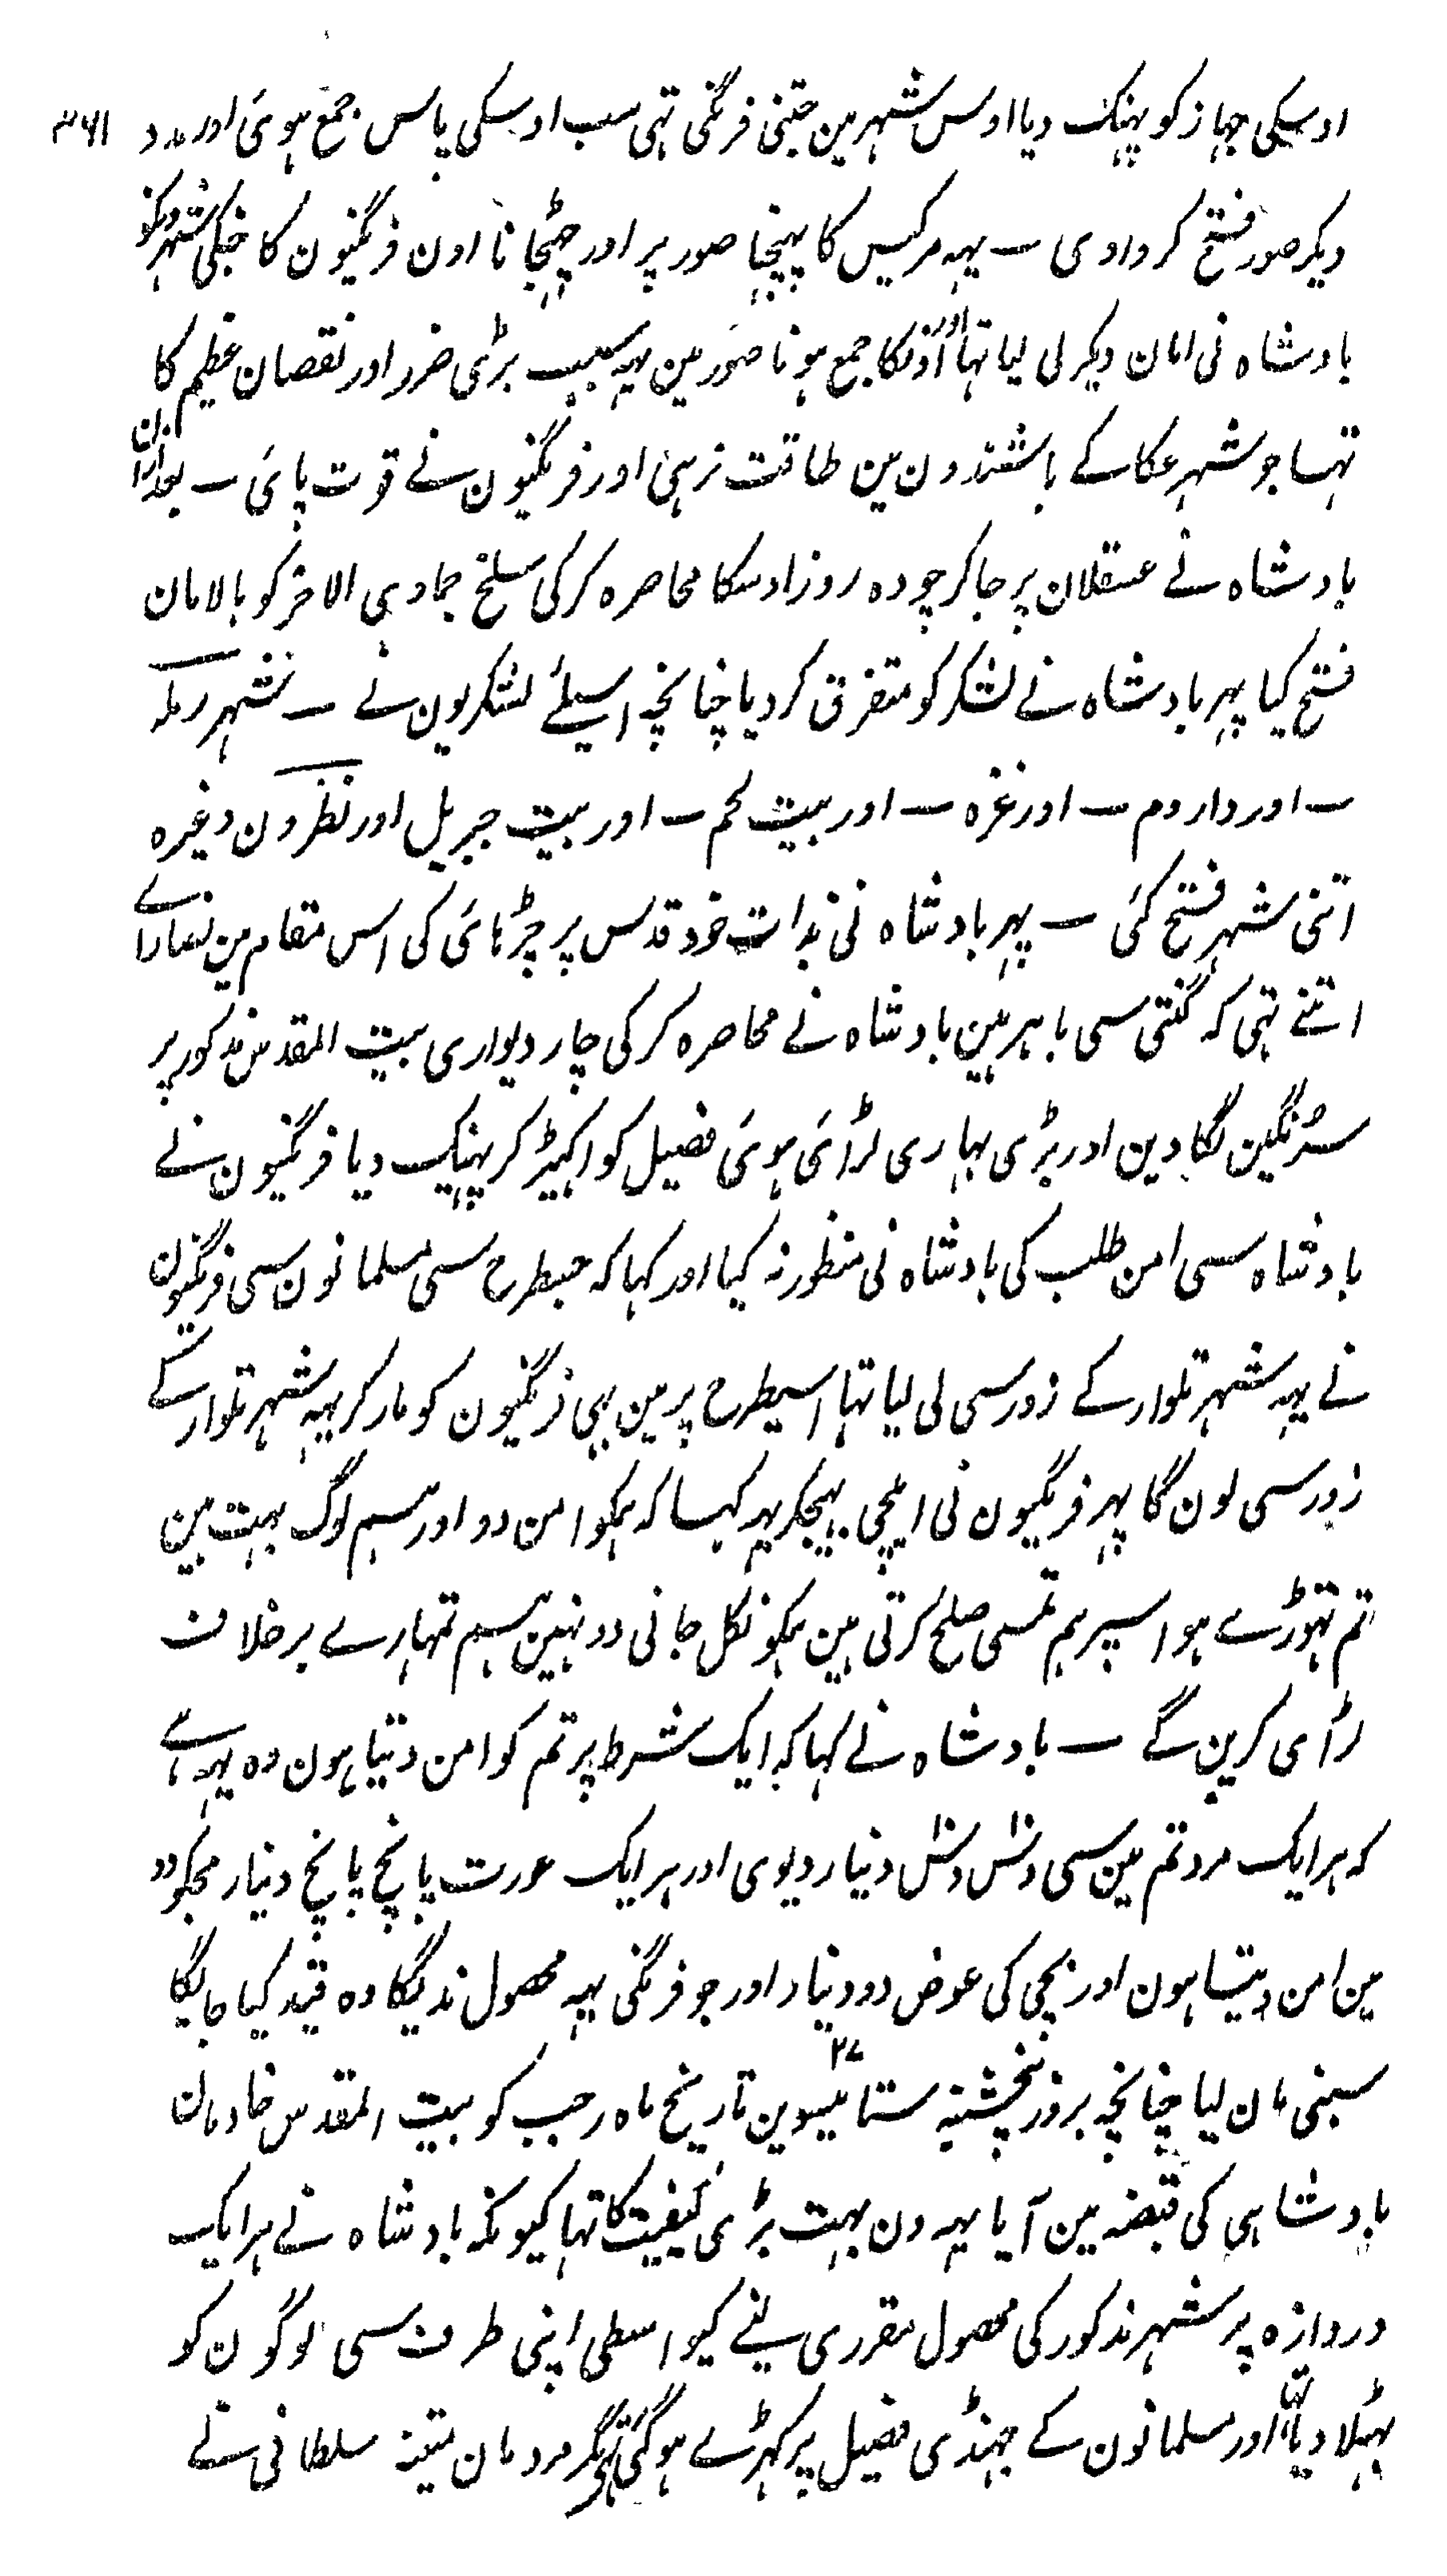 اوسکی جہاز کو پہنک دیا اوس شہر مین جتنی فرنگی تہی سب اوسکی پاس جمع ہوئی اور مدد ۳۶۱
دیکر صور فتح کروادی — یہہ مرکیس کا پہنچنا صور پر اور چہٹجانا اون فرنگیون کا جنکی شہرونکو
بادشاہ نی امان دیکر لی لیا تہا اور اونکا جمع ہونا صور مین یہہ سبب بڑی ضرر اور نقصان عظیم کا
تہا جو شہر عکا کے باشندون مین طاقت نرہی اور فرنگیون نے قوت پائی — بعد ازان
بادشاہ نے عسقلان پر جاکر چودہ روز اوسکا محاصرہ کرکی سلخ جمادی الاخر کو بالامان
فتح کیا پہر بادشاہ نے لشکر کو متفرق کر دیا چنانچہ اسیلئے لشکریون نے — شہر رملہ
— اور داروم — اور غزہ — اور بیت لحم — اور بیت جبریل اور نظرون وغیرہ
اتنی شہر فتح کئی — پہر بادشاہ نی بذات خود قدس پر چڑہائی کی اس مقام مین نصارا
اتنے تہی کہ گنتی سی باہر ہین بادشاہ نے محاصرہ کرکی چار دیواری بیت المقدس مذکور پر
سرنگین لگا دین اور بڑی بہاری لڑائی ہوئی فصیل کو اکہیڑ کر پہنیک دیا فرنگیون نے
بادشاہ سی امن طلب کی بادشاہ نی منظور نہ کیا اور کہا کہ جسطرح سی مسلمانون سی فرنگیون
نے یہہ شہر تلوار کے زور سی لی لیا تہا اسیطرح پر مین بہی فرنگیون کو مار کر یہہ شہر تلوار کے
زور سی لون گا پہر فرنگیون نی ایلچی بہیجکر یہہ کہا کہ ہمکو امن دو اور ہم لوگ بہت ہین
تم تہوڑے ہو اسپر ہم تمسی صلح کرتی ہین ہمکو نکل جانی دو نہین ہم تمہارے برخلاف
لڑائی کرین گے — بادشاہ نے کہا کہ ایک شرط پر تم کو امن دیتا ہون وہ یہہ ہے
کہ ہر ایک مرد تم مین سی دس دس دینار دیوی اور ہر ایک عورت پانچ پانچ دینار مجکو دو
مین امن دیتا ہون اور بچی کی عوض دو دینار اور جو فرنگی یہہ محصول ندیگا وہ قید کیا جایگا
سبنی مان لیا چنانچہ بروز پنجشنبہ ستائیسوین ۲۷ تاریخ ماہ رجب کو بیت المقدس خادمان
بادشاہی کی قبضہ مین آیا یہہ دن بہت بڑی کیفیت کا تہا کیونکہ بادشاہ نے ہر ایک
دروازہ پر شہر مذکور کی محصول مقرری لینے کیواسطی اپنی طرف سی لوگون کو
بہٹلا دیا تہا اور مسلمانون کے جہنڈی فصیل پر کہڑے ہوگئی تہی مگر مردمان متعینہ سلطانی نے